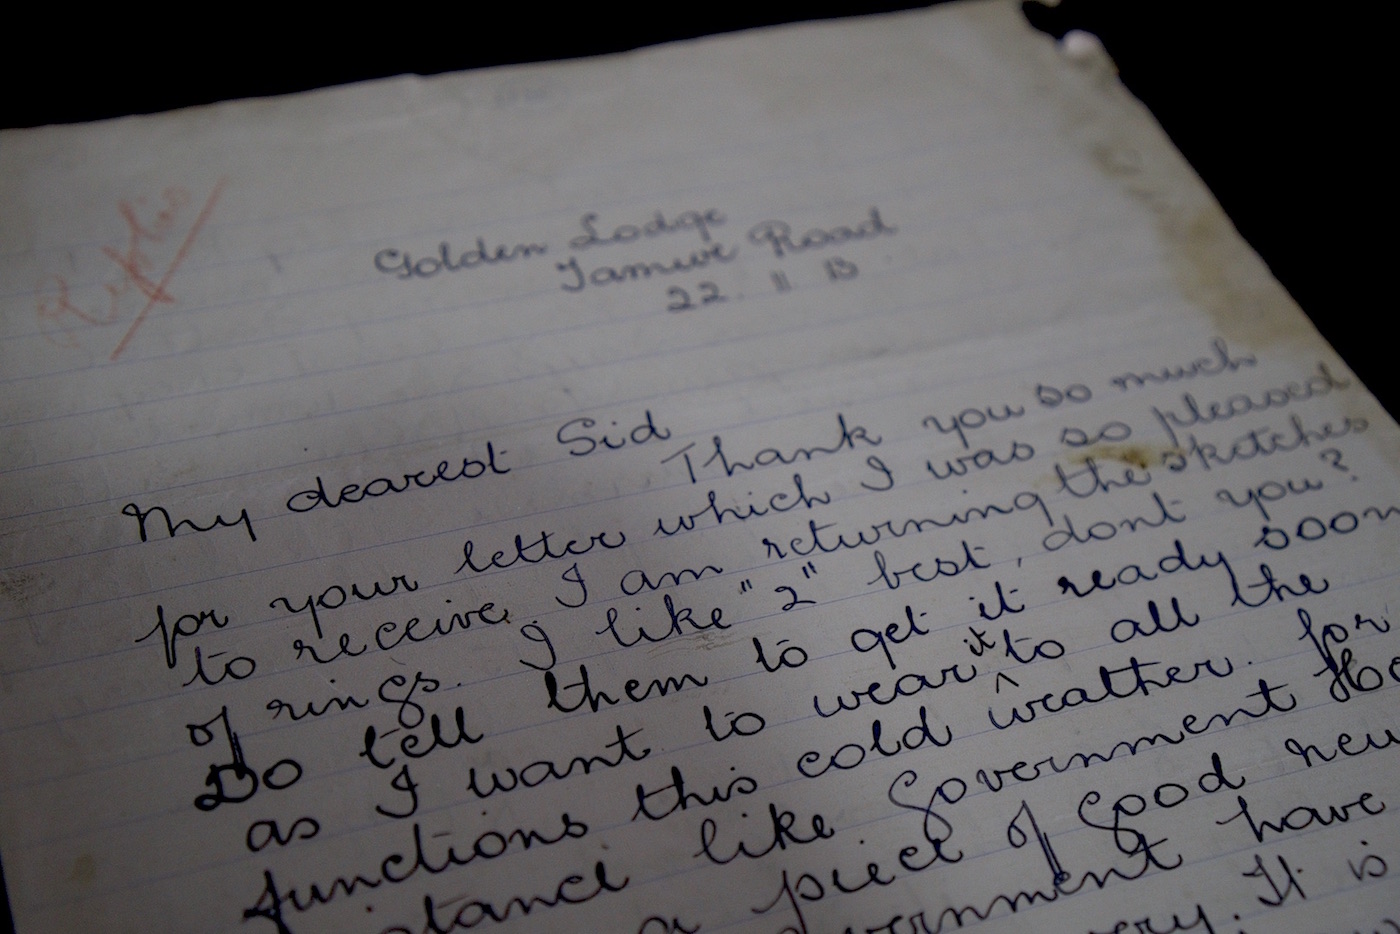 Replies
Golden Lodge
Jamwe Road
22. 11 13
My dearest Sid
Thank you so much
for your letter which I was so pleased
to receive. I am returning the sketches
of rings. I like "2" best, dont you?
Do tell them to get it ready soon
as I want to wear it to all the
functions this cold weather. for
stance like Government Ho
a piece of good new
vernment have
ery. It is